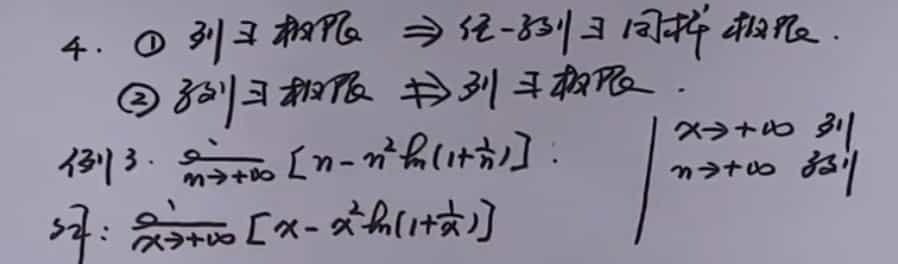 4. ① 列∃极限 ⇒ 任一子列∃同样极限.
② 子列∃极限 ⇏ 列∃极限.
例3. lim n→+∞ [n-n²ln(1+1/n)].
解: lim x→+∞ [x-x²ln(1+1/x)]
x→+∞ 列
n→+∞ 子列